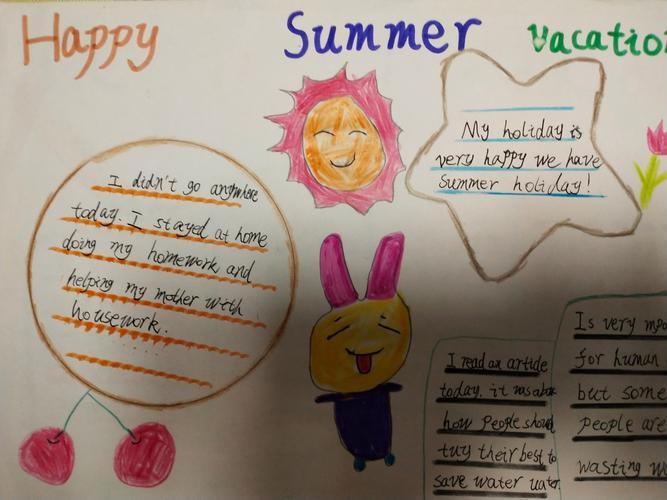 Happy Summer Vacation
I didn't go anywhere
today. I stayed at home
doing my homework and
helping my mother with
housework.
My holiday is
very happy we have
Summer holiday!
I read an article
today. it was
how people
tuy their best to
save water
Is very
for human
but some
people are
wasting